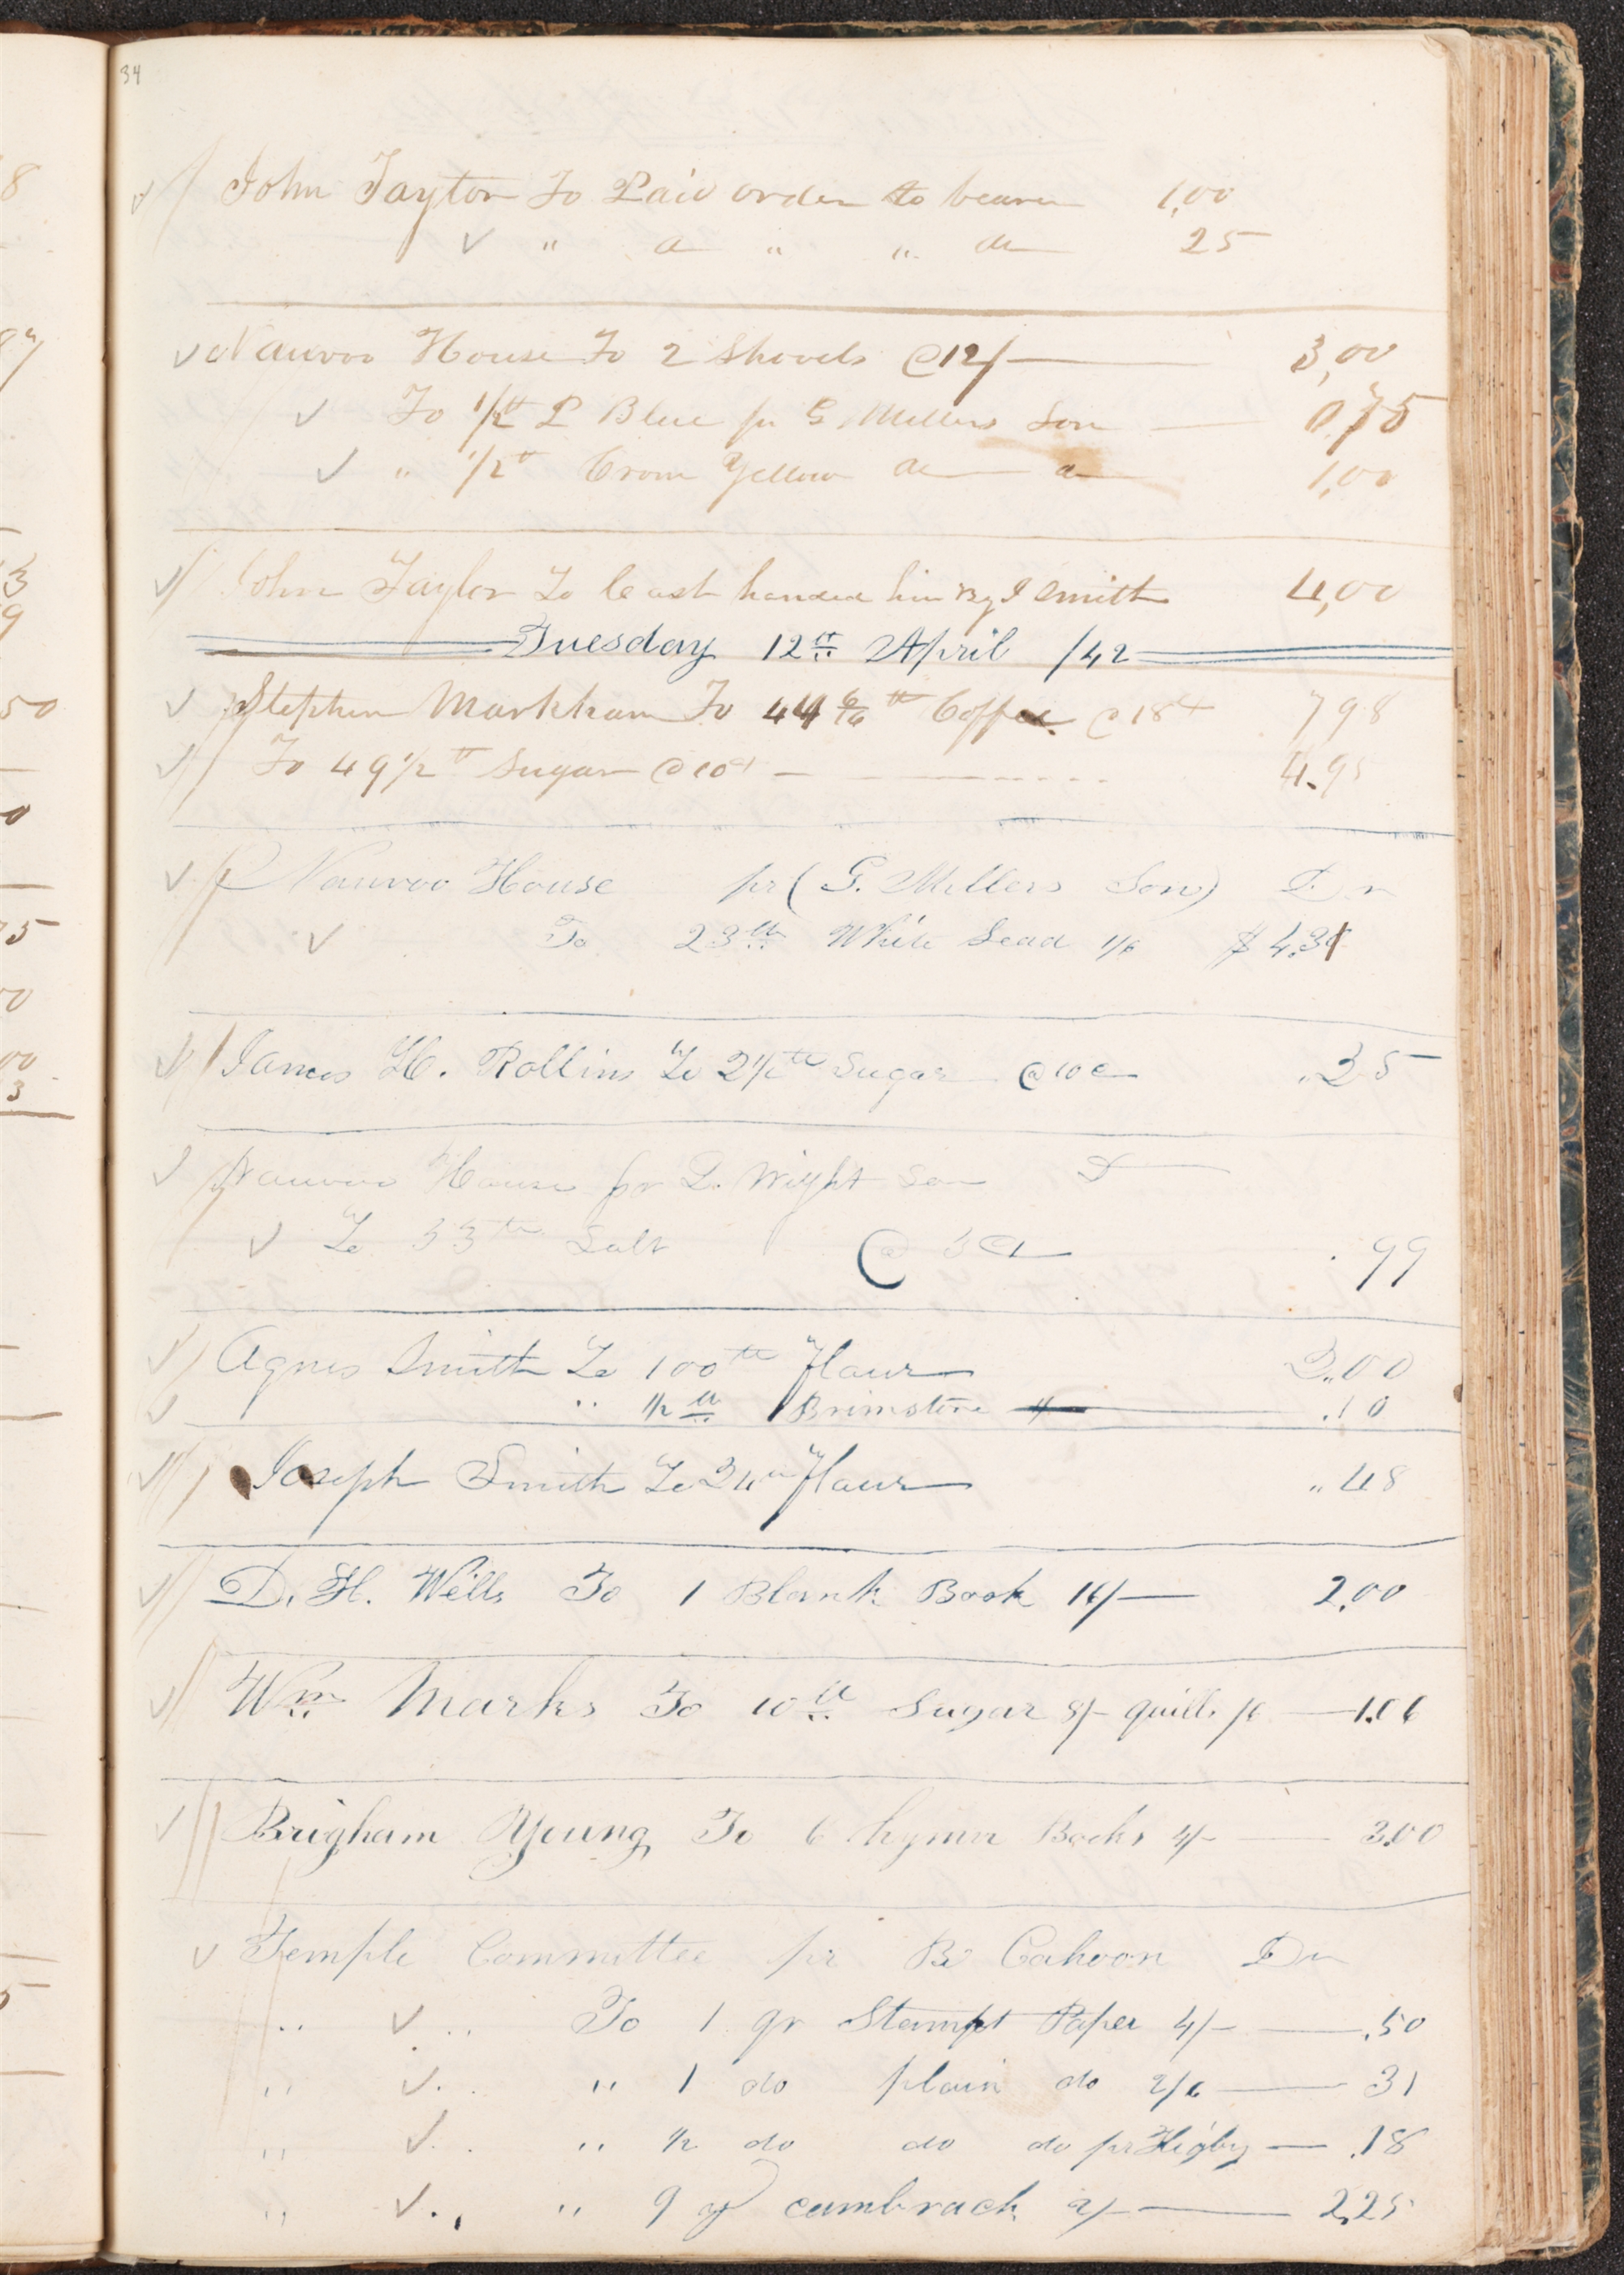 34
John Taylor To Paid order to bearer 1,00
" do " " do 25
Nauvoo House To 2 Shovels @ 12/ 3,00
To 1/2 lb P Blue pr G Millers Son 0,75
" 1/2 lb Crom Yellow do do 1,00
John Taylor To Cash handed him By J Smith 4,00
Tuesday 12th April /42
Stephen Markham To 44 6/16 lb Coffee @ 18 cts 7 98
To 49 1/2 lb Sugar @ 10 cts 4.95
Nauvoo House pr (G. Millers Son) Dr
To 23 lb White Lead 1/6 $ 4.31
James H. Rollins To 2 1/2 lb Sugar @ 10 c .25
Nauvoo House pr L. Wight Son D
To 33 lb Salt @ 3 cts .99
Agnes Smith To 100 lb flour 2.00
" 1/2 lb Brimstone .10
Joseph Smith To 24 lb flour " 48
D. H. Wells To 1 Blank Book 16/ 2,00
Wm Marks To 10 lb Sugar 8/ quills /6 1.06
Brigham Young To 6 hymn Books 4/ 3.00
Temple Committee pr B Cahoon Dr
" " To 1 qr Stampt Paper 4/ .50
" " " 1 do plain do 2/6 31
" " " 1/2 do do do pr Higby .18
" " " 9 yd cambrack 2/ 2,25